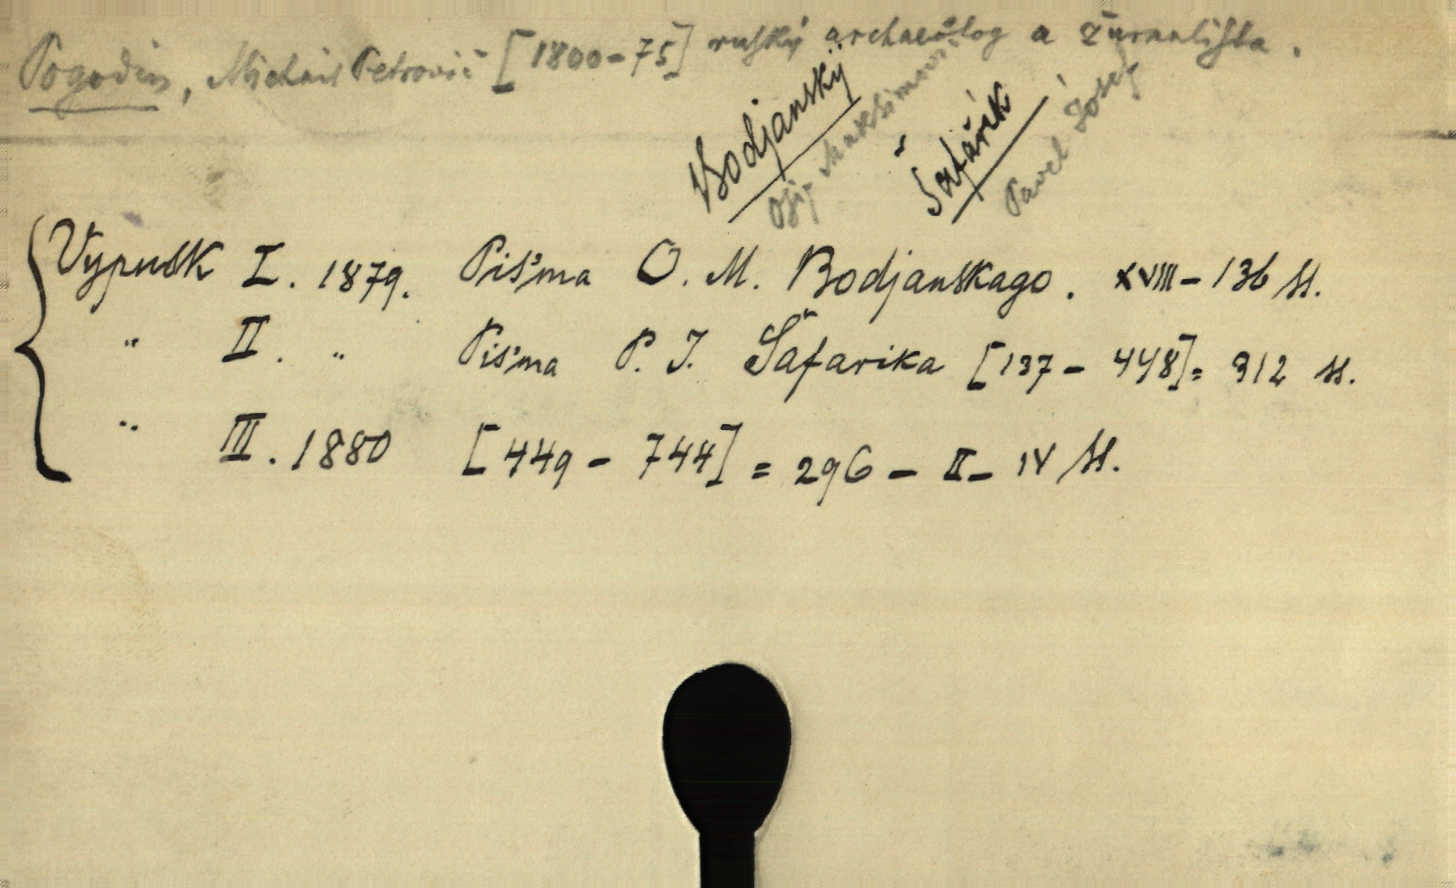 Pogodin, Michail Petrovič [1800-75] ruský archaeolog a žurnalista.
Bodjanský
Osip Maksimovič
Šafařík
Pavel Josef
Vypusk I. 1879. Pis'ma O. M. Bodjanskago. XVIII - 136 ss.
" II. " Pis'ma P. J. Šafarika [137 - 448] = 312 ss.
" III. 1880 [449 - 744] = 296 - II - IV ss.